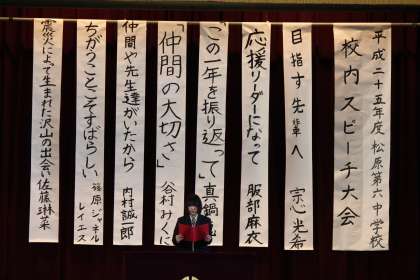 平成二十五年度 松原第六中学校
校内スピーチ大会
目指す先輩へ 宗心光希
応援リーダーになって 服部麻衣
「この一年を振り返って」真鍋
「仲間の大切さ」 谷村みくに
仲間や先生達がいたから 内村誠一郎
ちがうことこそすばらしい 篠原ジャネル レイエス
震災によって生まれた沢山の出会い 佐藤琳菜